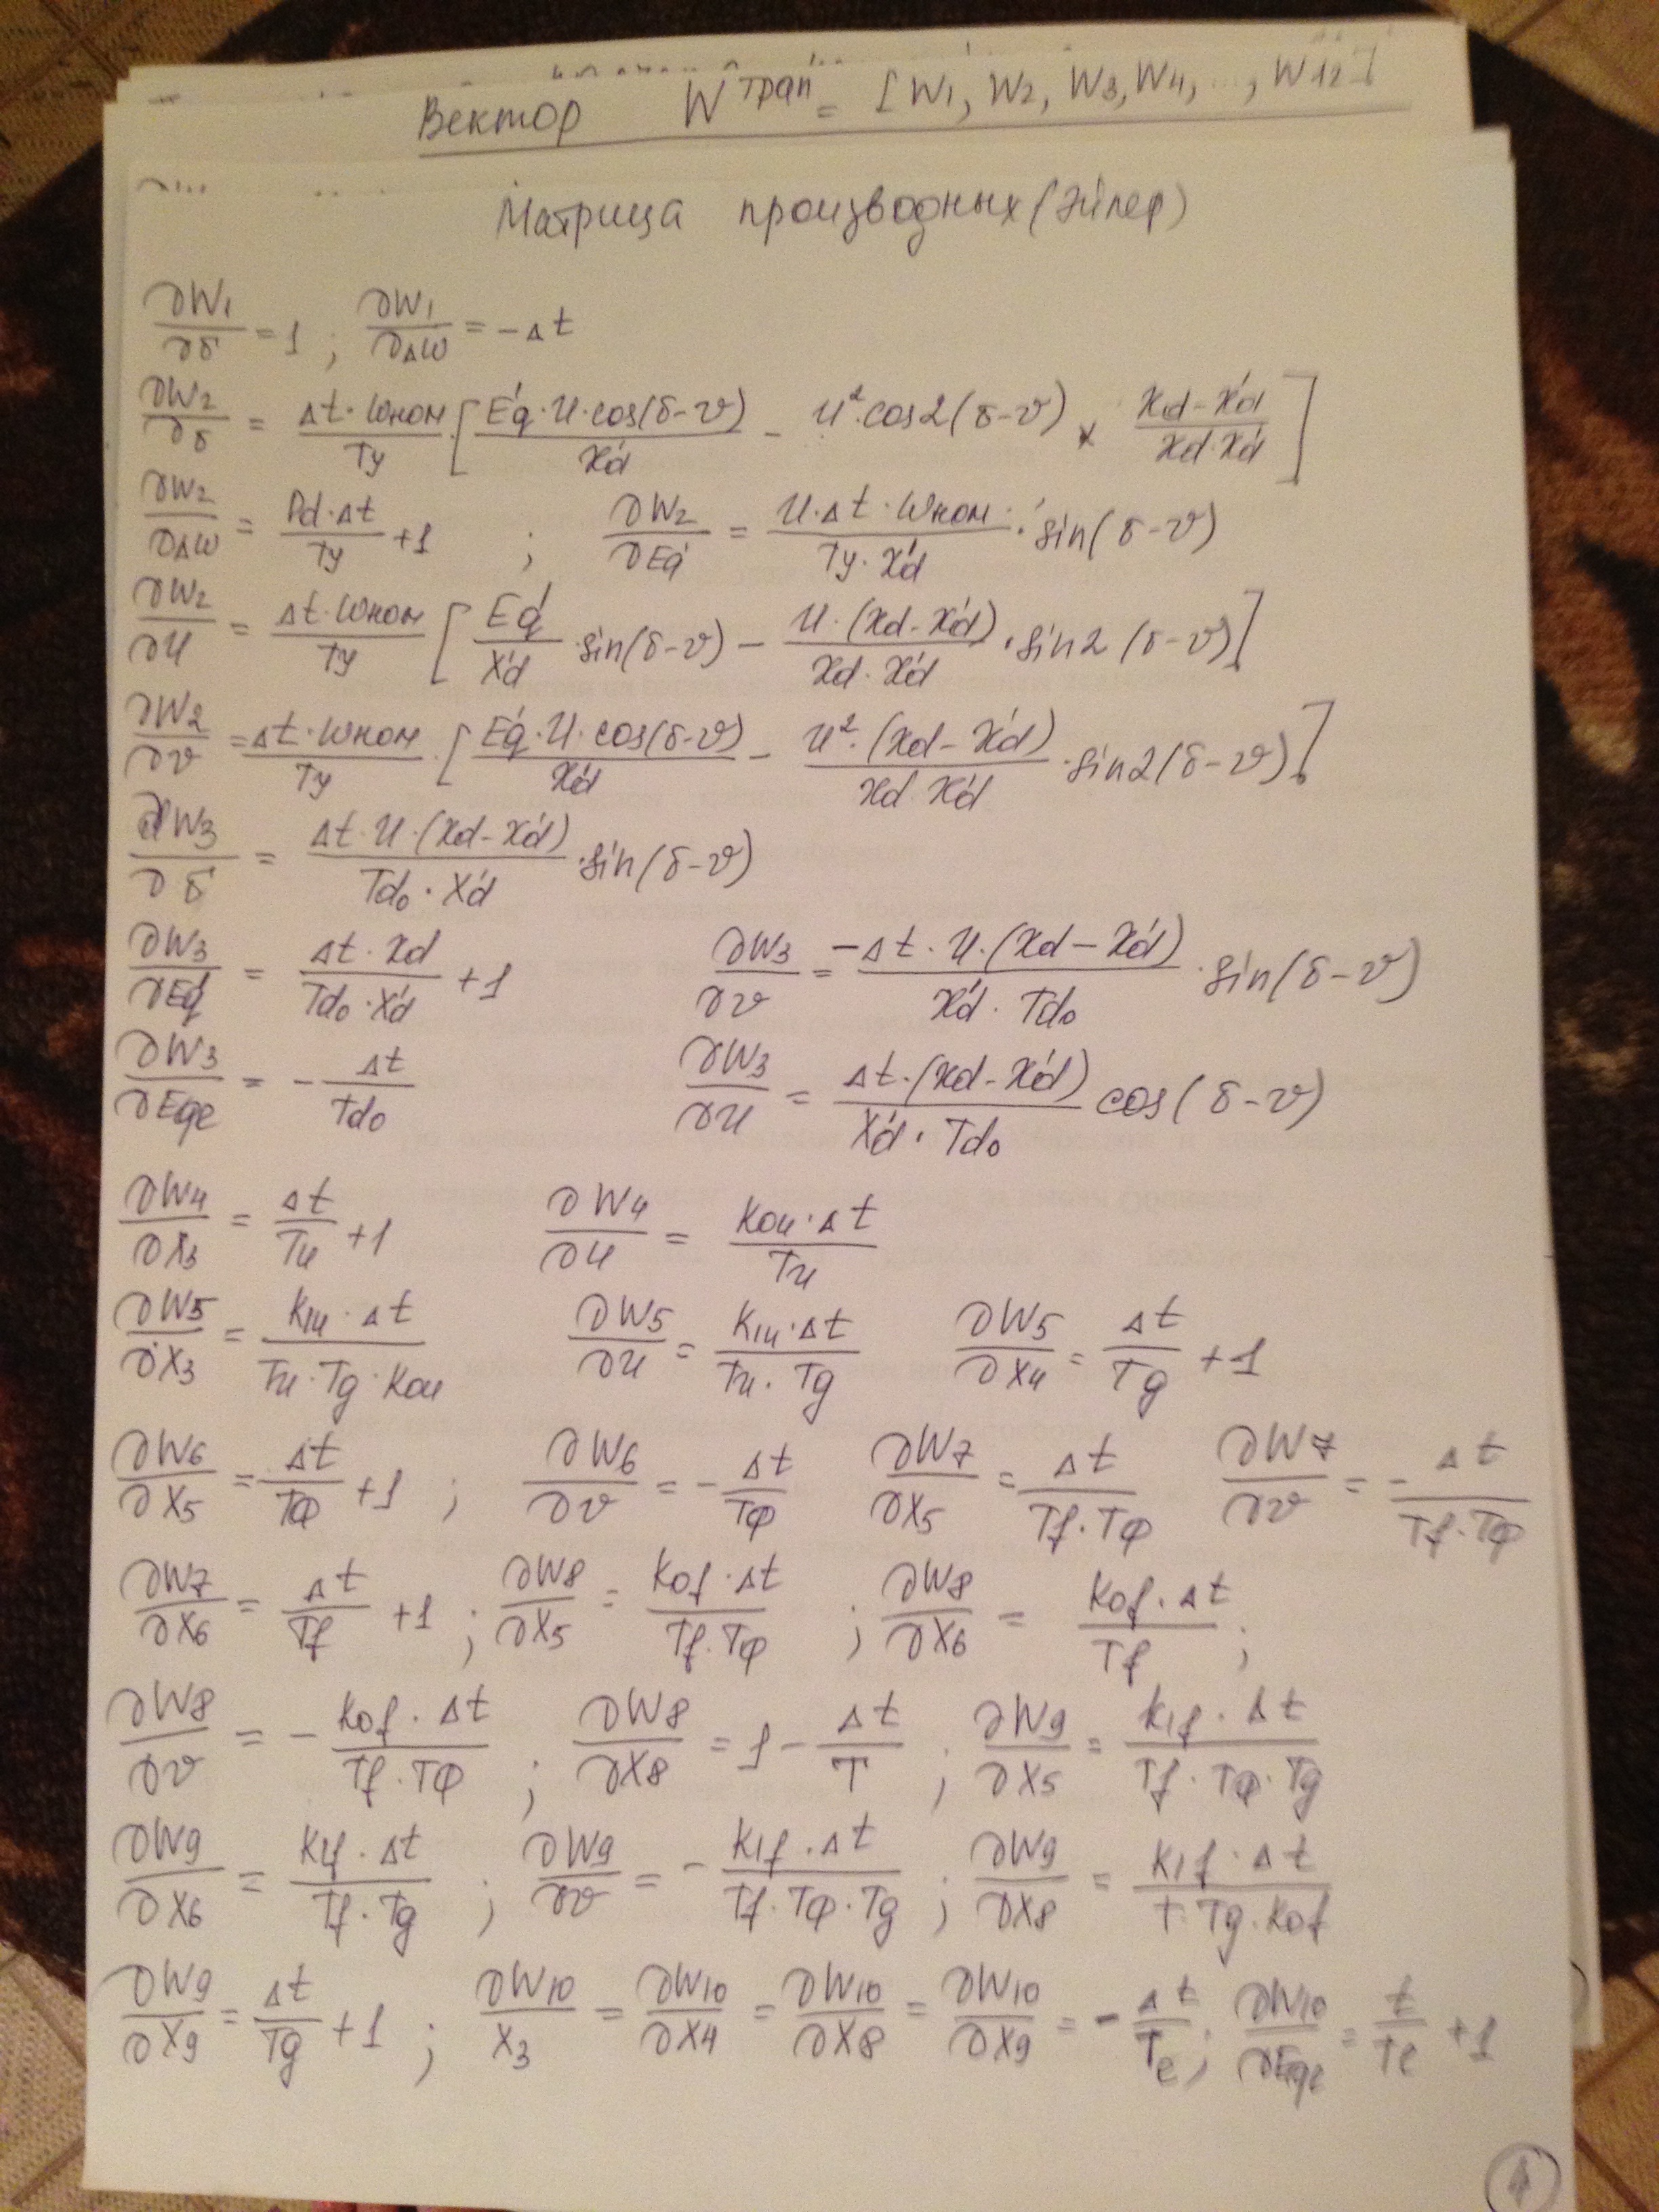 Вектор W^трап = [W1, W2, W3, W4, ..., W12]
Матрица производных (Эйлер)
∂W1/∂δ = 1 ; ∂W1/∂Δω = -Δt
∂W2/∂δ = Δt·ωном/Ty · [E'q·U·cos(δ-v)/X'd - U²·cos2(δ-v) × (Xd-X'd)/(Xd·X'd)]
∂W2/∂Δω = Pd·Δt/Ty + 1 ; ∂W2/∂E'q = U·Δt·ωном/(Ty·X'd) · sin(δ-v)
∂W2/∂U = Δt·ωном/Ty [E'q/X'd · sin(δ-v) - U·(Xd-X'd)/(Xd·X'd) · sin2(δ-v)]
∂W2/∂v = Δt·ωном/Ty · [E'q·U·cos(δ-v)/X'd - U²·(Xd-X'd)/(Xd·X'd) · sin2(δ-v)]
∂W3/∂δ = Δt·U·(Xd-X'd)/(Tdo·X'd) · sin(δ-v)
∂W3/∂E'q = Δt·Xd/(Tdo·X'd) + 1 ∂W3/∂v = -Δt·U·(Xd-X'd)/(X'd·Tdo) · sin(δ-v)
∂W3/∂Eqe = -Δt/Tdo ∂W3/∂U = Δt·(Xd-X'd)/(X'd·Tdo) cos(δ-v)
∂W4/∂X3 = Δt/Tu + 1 ∂W4/∂U = Kou·Δt/Tu
∂W5/∂X3 = K1u·Δt/(Tu·Tg·Kou) ∂W5/∂U = K1u·Δt/(Tu·Tg) ∂W5/∂X4 = Δt/Tg + 1
∂W6/∂X5 = Δt/Tф + 1 ; ∂W6/∂v = -Δt/Tф ∂W7/∂X5 = Δt/(Tf·Tф) ∂W7/∂v = -Δt/(Tf·Tф)
∂W7/∂X6 = Δt/Tf + 1 ; ∂W8/∂X5 = Kof·Δt/(Tf·Tф) ; ∂W8/∂X6 = Kof·Δt/Tf ;
∂W8/∂v = -Kof·Δt/(Tf·Tф) ; ∂W8/∂X8 = 1 - Δt/T ; ∂W9/∂X5 = K1f·Δt/(Tf·Tф·Tg)
∂W9/∂X6 = K1f·Δt/(Tf·Tg) ; ∂W9/∂v = -K1f·Δt/(Tf·Tф·Tg) ; ∂W9/∂X8 = K1f·Δt/(T·Tg·Kof)
∂W9/∂X9 = Δt/Tg + 1 ; ∂W10/X3 = ∂W10/∂X4 = ∂W10/∂X8 = ∂W10/∂X9 = -Δt/Te ; ∂W10/∂Eqe = t/Te + 1